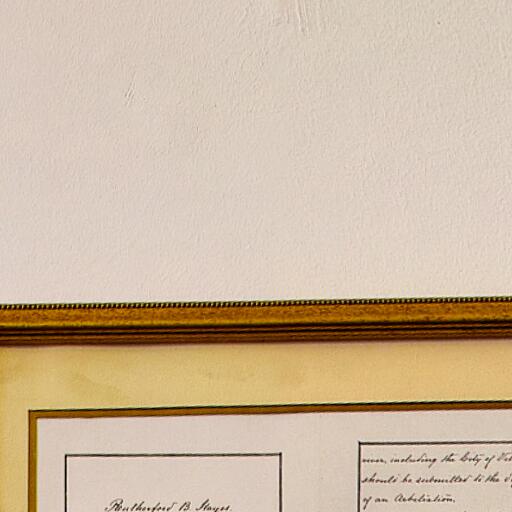 Rutherford B. Hayes.
river, including the City of
should be submitted to the
of an Arbitration.